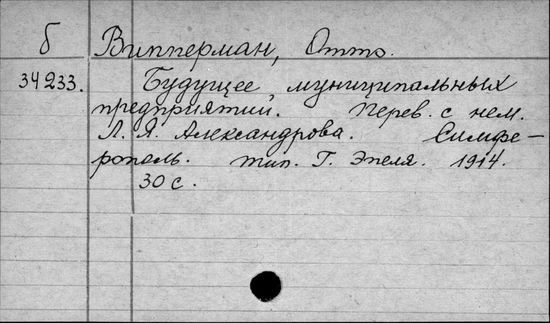 б Виpперман, Отто.
34233. Будущее муниципальных
предприятий. Перев. с нем.
Л. Я. Александрова. Симфе-
рополь. тип. Г. Эпеля. 1914.
30 с.